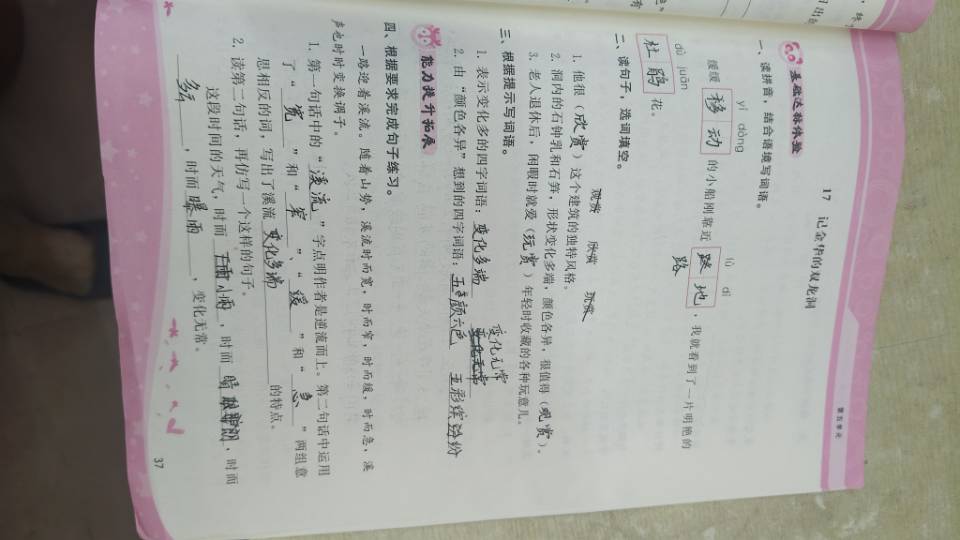 17 记金华的双龙洞
基础达标体验
一、读拼音，结合语境填写词语。
yí dòng
lù dì
缓缓 移动 的小船刚靠近 陆地 ，我就看到了一片明艳的
路
dù juān
杜鹃 花。
二、读句子，选词填空。
观赏 欣赏 玩赏
1. 他很（欣赏）这个建筑的独特风格。
2. 洞内的石钟乳和石笋，形状变化多端，颜色各异，很值得（观赏）。
3. 老人退休后，闲暇时就爱（玩赏）年轻时收藏的各种玩意儿。
三、根据提示写词语。
变化无常
1. 表示变化多的四字词语：变化多端 变化无常
2. 由“颜色各异”想到的四字词语：五颜六色 五彩缤纷
能力提升拓展
四、根据要求完成句子练习。
一路迎着溪流。随着山势，溪流时而宽，时而窄，时而缓，时而急，溪
声也时时变换调子。
1. 第一句话中的“溪流”字点明作者是逆流而上。第二句话中运用
了“宽”和“窄”“缓”和“急”两组意
思相反的词，写出了溪流变化多端的特点。
2. 读第二句话，再仿写一个这样的句子。
这段时间的天气，时而下小雨，时而晴，时而
多云，时而曝雨，变化无常。
第五单元
37